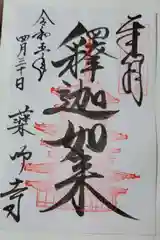 奉拝
釋迦如来
令和五年
四月三十日
藥師寺